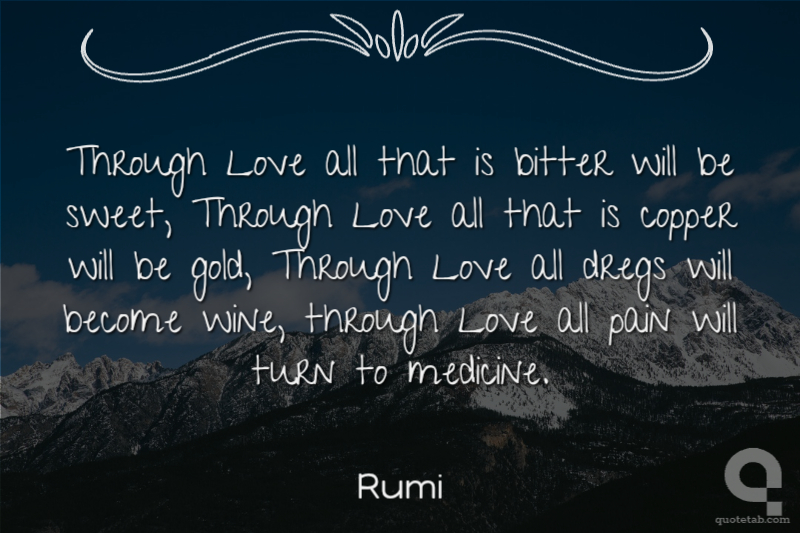 Through Love all that is bitter will be
sweet, Through Love all that is copper
will be gold, Through Love all dregs will
become wine, through Love all pain will
turn to medicine.
Rumi
quotetab.com